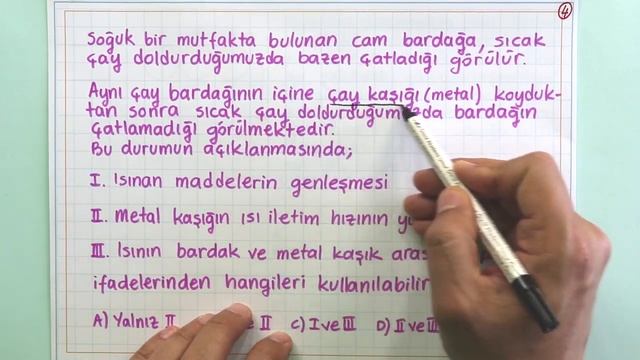 4
Soğuk bir mutfakta bulunan cam bardağa, sıcak
çay doldurduğumuzda bazen çatladığı görülür.
Aynı çay bardağının içine çay kaşığı (metal) koyduk-
tan sonra sıcak çay bardağın
çatlamadığı görülmektedir.
Bu durumun açıklanmasında;
I. Isınan maddelerin genleşmesi
II. Metal kaşığın ısı iletim hızının
III. Isının bardak ve metal kaşık
ifadelerinden hangileri
A) Yalnız II II C) I ve III D) II ve